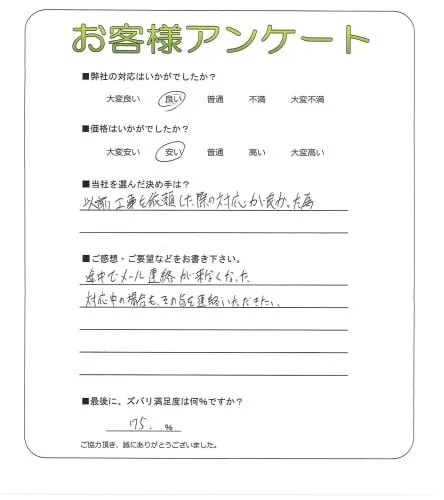 お客様アンケート
■弊社の対応はいかがでしたか?
大変良い 良い 普通 不満 大変不満
■価格はいかがでしたか?
大変安い 安い 普通 高い 大変高い
■当社を選んだ決め手は?
以前工事を依頼した際の対応が良かった為
■ご感想・ご要望などをお書き下さい。
途中でメール連絡が来なくなった
対応中の場合も、その旨を連絡いただきたい。
■最後に、ズバリ満足度は何%ですか?
75. %
ご協力頂き、誠にありがとうございました。